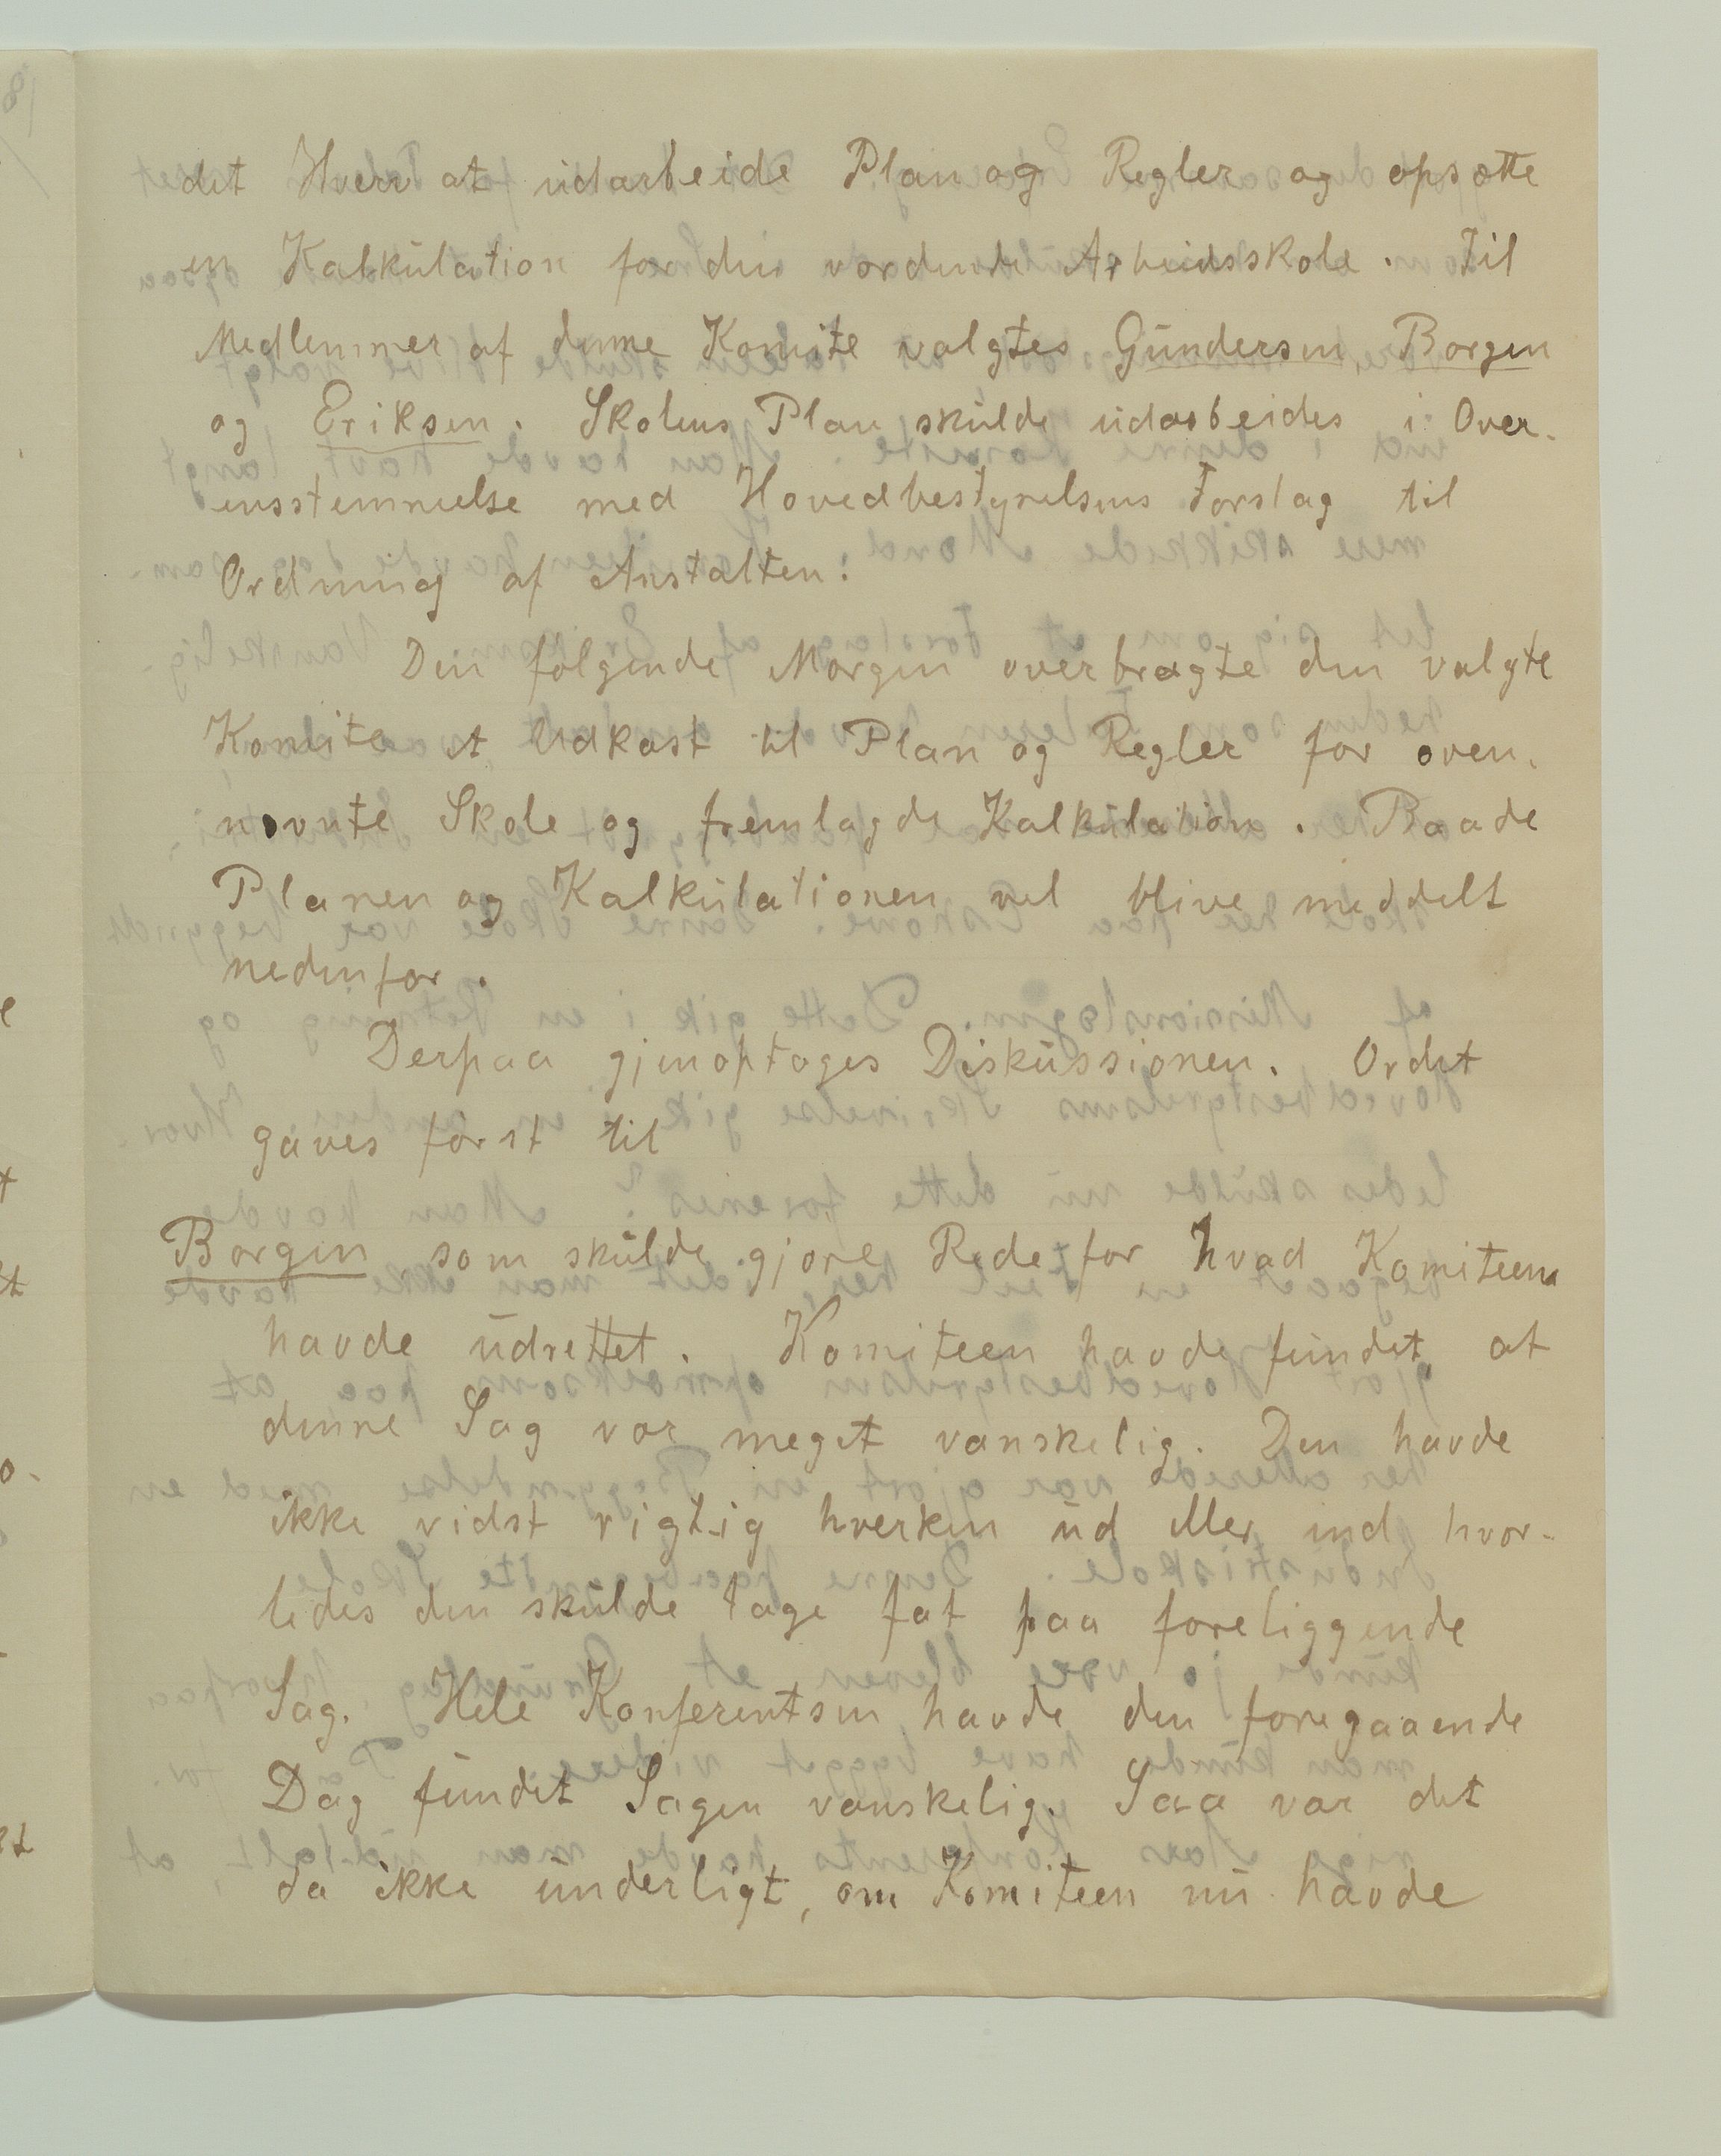 det Hverv at udarbeide Plan og Regler og opsætte
en Kalkulation for den vordende Arbeidsskole. Til
Medlemmer af denne Komite valgtes Gundersen, Borgen
og Eriksen. Skolens Plan skulde udarbeides i Over-
ensstemmelse med Hovedbestyrelsens Forslag til
Ordning af Anstalten.
Den følgende Morgen overbragte den valgte
Komite et Udkast til Plan og Regler for oven-
nævnte Skole og fremlagde Kalkulation. Baade
Planen og Kalkulationen vil blive meddelt
nedenfor.
Derpaa gjenoptoges Diskussionen. Ordet
gaves først til
Borgen som skulde gjøre Rede for hvad Komiteen
havde udrettet. Komiteen havde fundet, at
denne Sag var meget vanskelig. Den havde
ikke vidst rigtig hverken ud eller ind hvor-
ledes den skulde tage fat paa foreliggende
Sag. Hele Konferentsen havde den foregaaende
Dag fundet Sagen vanskelig. Saa var det
da ikke underligt, om Komiteen nu havde